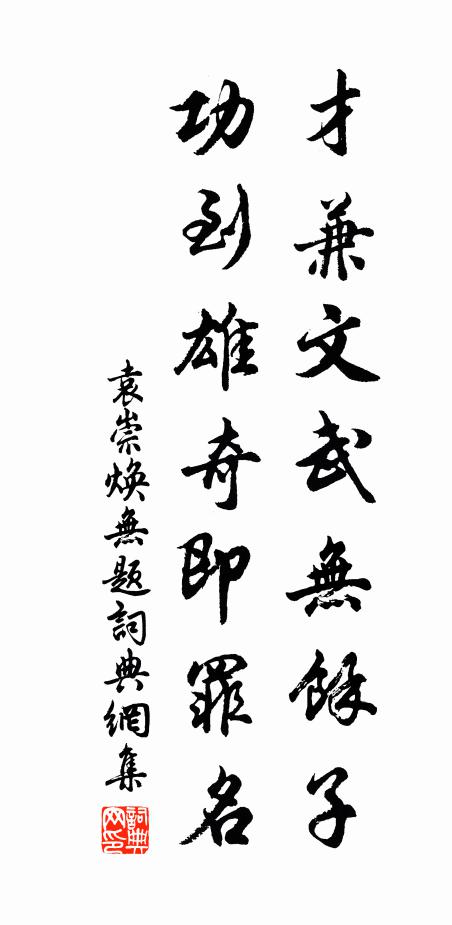 才兼文武無餘子
功到雄奇即罪名
袁崇煥無題詞典網集
詞典网印